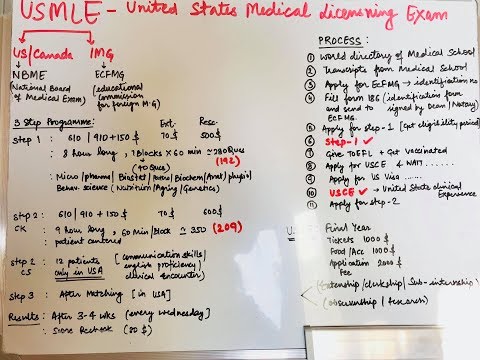 USMLE - United States Medical Licensing Exam
US/Canada IMG
NBME ECFMG
(National Board of Medical Exam) (educational commission for foreign M.G)
3 Step Programme: Ext. Resc.
Step 1 : 610/910+150$ 70$ 500$
: 8 hour long, 7 blocks x 60 min ≈ 280 Ques (192)
(40 Ques)
: Micro/pharma/Biostat/Patho/Biochem/Anat/physio/
Behav. science (Nutrition/Aging/Genetics)
Step 2 : 610/910+150$ 70$ 600$
CK : 9 hour long, 60 min/Block ≈ 350 (209)
: patient centered
Step 2 : 12 patients [communication skills/
CS only in USA english proficiency/
clinical encounter]
Step 3 : After Matching [in USA]
Results : After 3-4 wks (every wednesday)
: Score Recheck (80$)
PROCESS :
① World directory of Medical School
② Transcripts from Medical School
③ Apply for ECFMG → identification no
④ Fill form 186 (identification form
and send to signed by Dean/Notary)
ECFMG.
⑤ Apply for step-1 (get eligibility period)
⑥ Step-1 ✓
⑦ Give TOEFL + Get vaccination
⑧ Apply for USCE & WAIT.......
⑨ Apply for US Visa .....
⑩ USCE ✓ → United State clinical
Experience
⑪ Apply for step-2
Final Year
Tickets 1000 $
Food/Acc 1000 $
Application 2000 $
Fee
(Externship/clerkship/Sub-internship)
(observership/research)